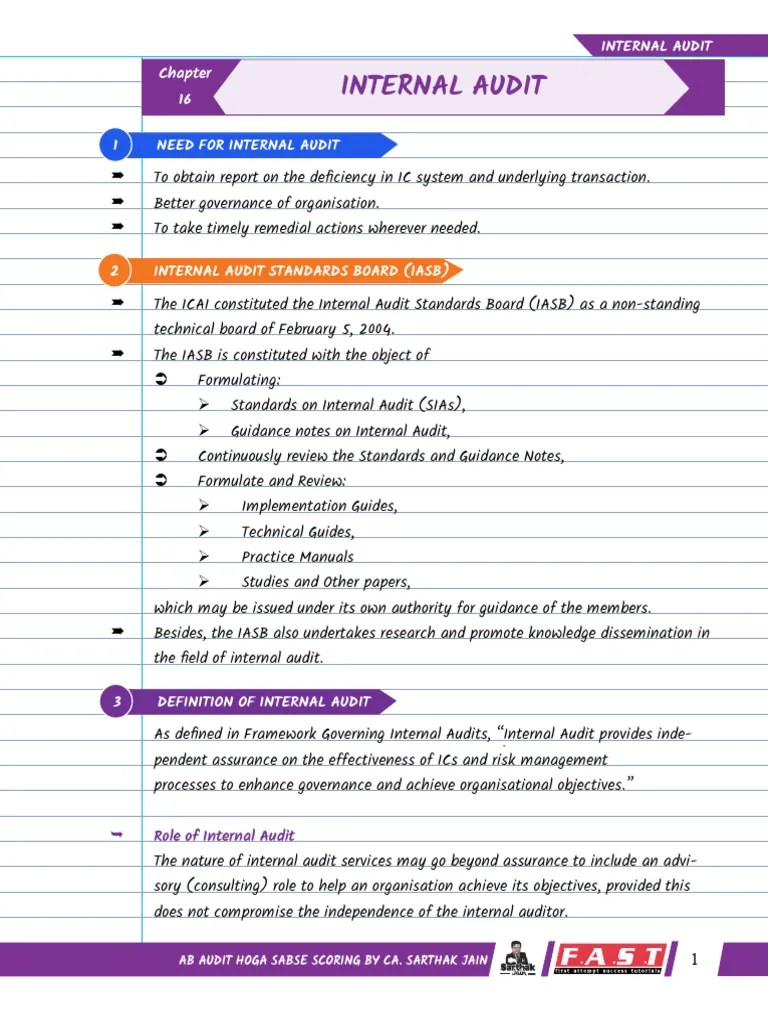 INTERNAL AUDIT
Chapter
16
INTERNAL AUDIT
1 NEED FOR INTERNAL AUDIT
To obtain report on the deficiency in IC system and underlying transaction.
Better governance of organisation.
To take timely remedial actions wherever needed.
2 INTERNAL AUDIT STANDARDS BOARD (IASB)
The ICAI constituted the Internal Audit Standards Board (IASB) as a non-standing
technical board of February 5, 2004.
The IASB is constituted with the object of
Formulating:
Standards on Internal Audit (SIAs),
Guidance notes on Internal Audit,
Continuously review the Standards and Guidance Notes,
Formulate and Review:
Implementation Guides,
Technical Guides,
Practice Manuals
Studies and Other papers,
which may be issued under its own authority for guidance of the members.
Besides, the IASB also undertakes research and promote knowledge dissemination in
the field of internal audit.
3 DEFINITION OF INTERNAL AUDIT
As defined in Framework Governing Internal Audits, “Internal Audit provides inde-
pendent assurance on the effectiveness of ICs and risk management
processes to enhance governance and achieve organisational objectives.”
Role of Internal Audit
The nature of internal audit services may go beyond assurance to include an advi-
sory (consulting) role to help an organisation achieve its objectives, provided this
does not compromise the independence of the internal auditor.
AB AUDIT HOGA SABSE SCORING BY CA. SARTHAK JAIN
Sarthak
Jain
F.A.S.T
first attempt success tutorials
1